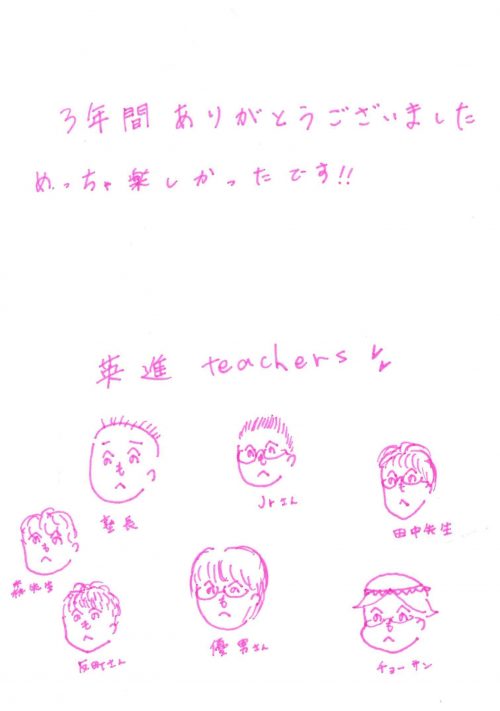 3年間ありがとうございました
めっちゃ楽しかったです!!
英進 teachers
塾長
Jrさん
田中先生
森先生
反町さん
優男さん
チョーサン